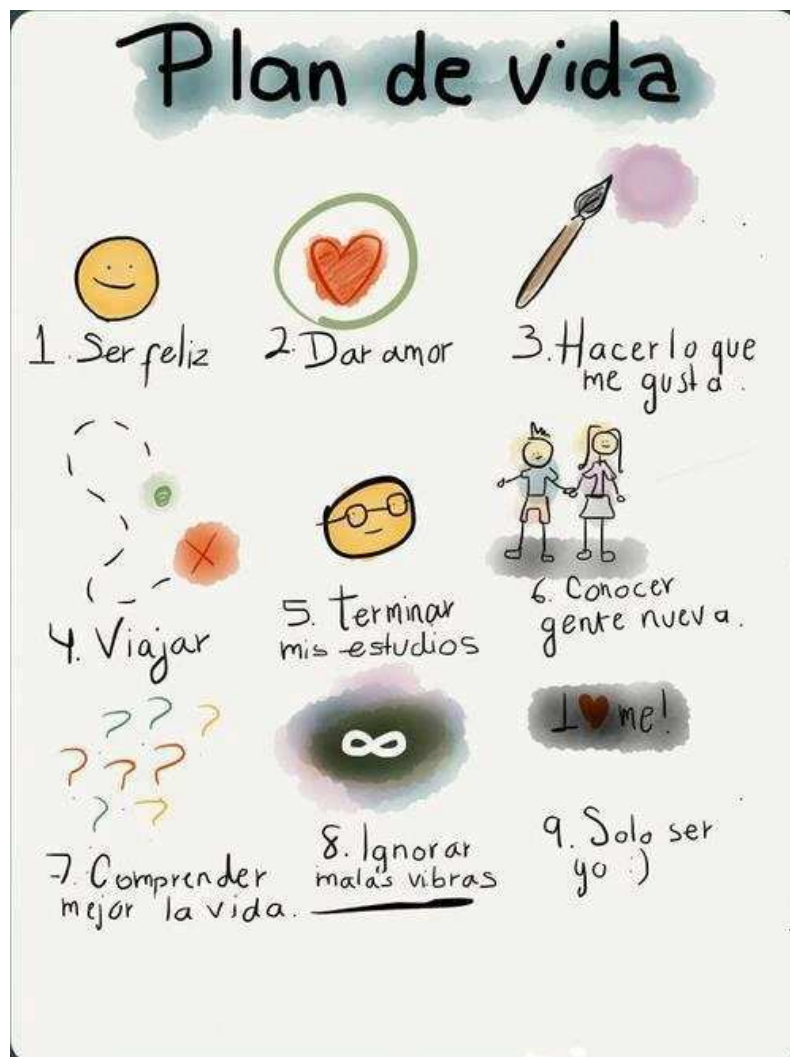 Plan de vida
1. Ser feliz
2. Dar amor
3. Hacer lo que
me gusta.
4. Viajar
5. Terminar
mis estudios
6. Conocer
gente nueva.
? ? ?
? ? ?
? ?
7. Comprender
mejor la vida.
∞
8. Ignorar
malas vibras
I ❤ me!
9. Solo ser
yo :)